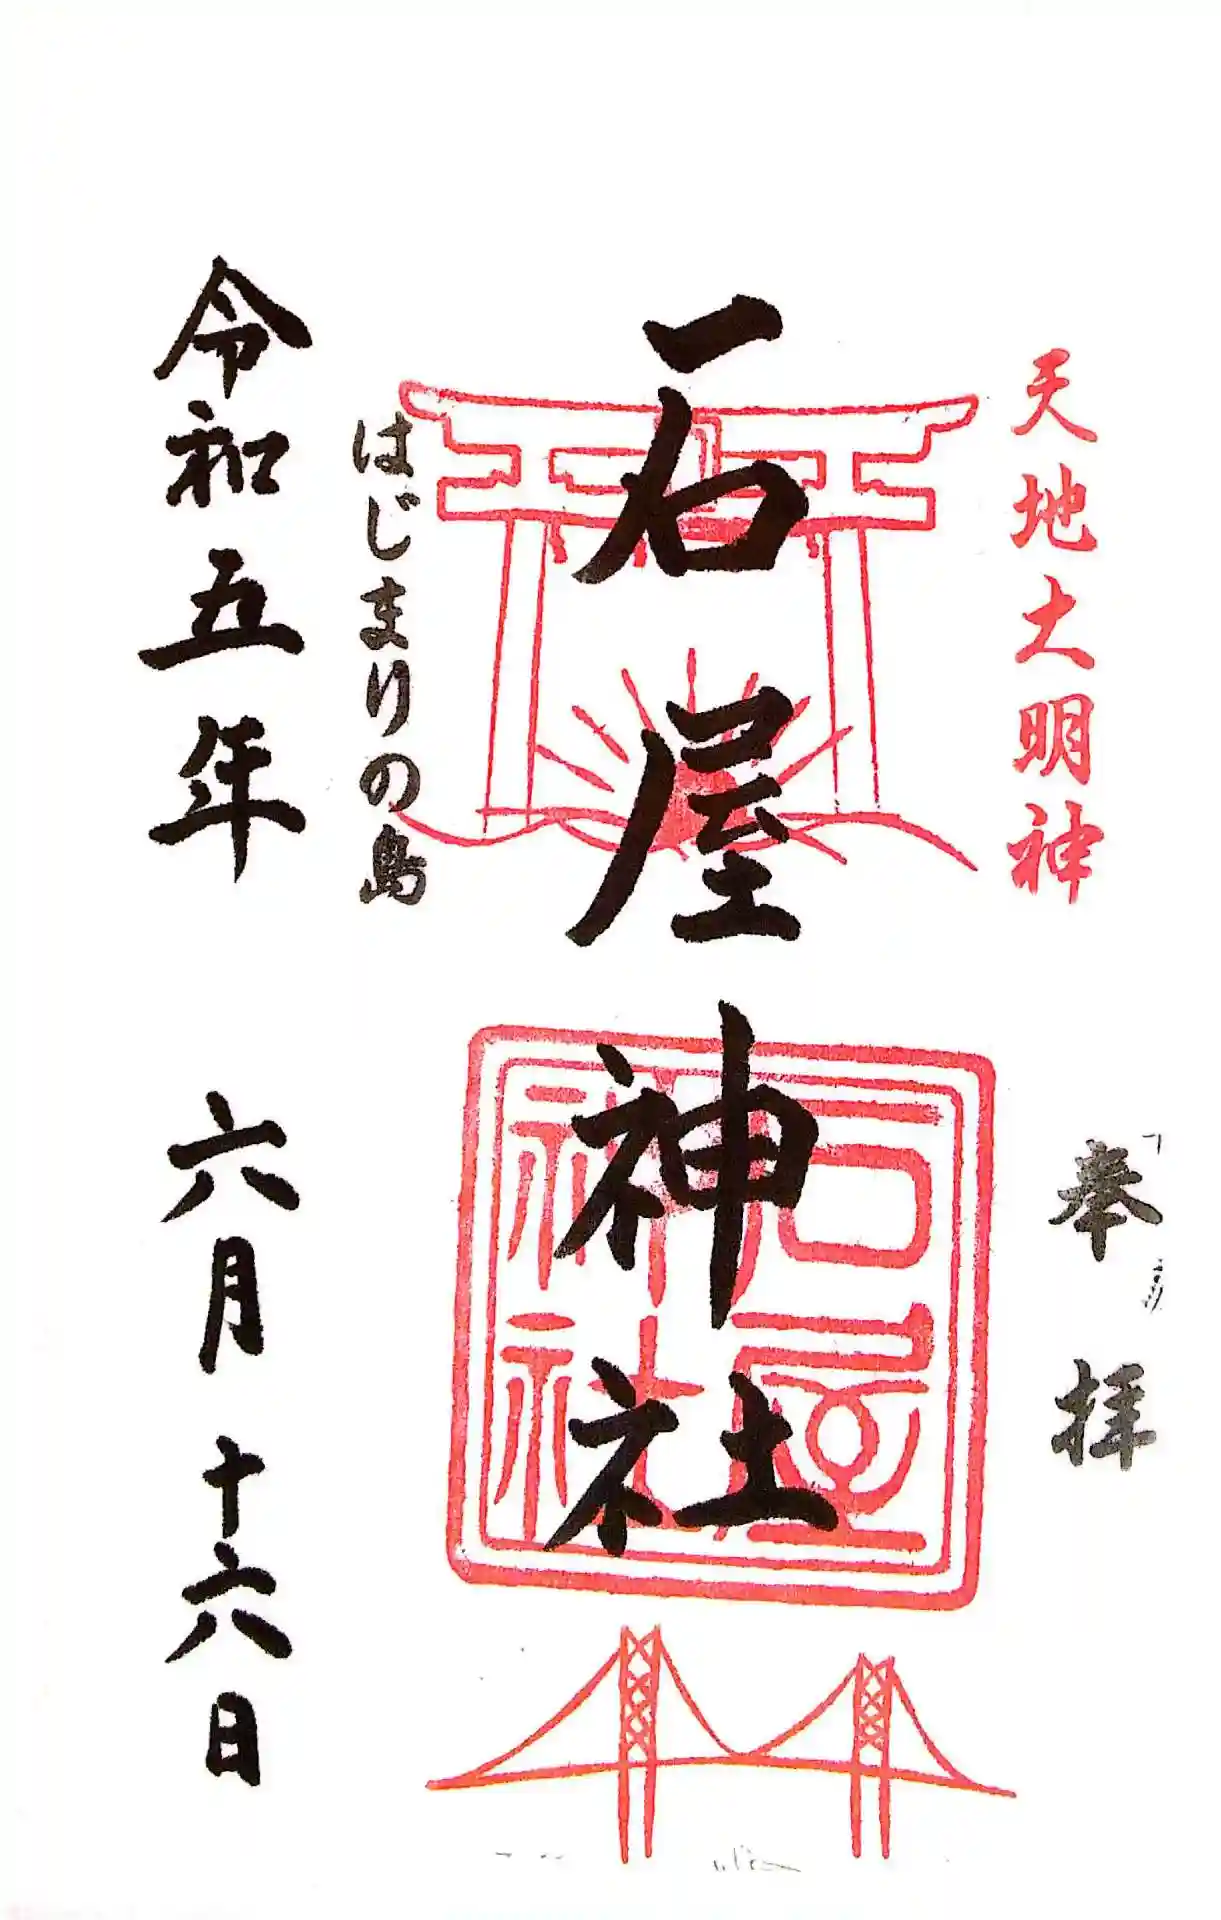 天地大明神
奉拝
石屋神社
石屋
神社
はじまりの島
令和五年 六月十六日